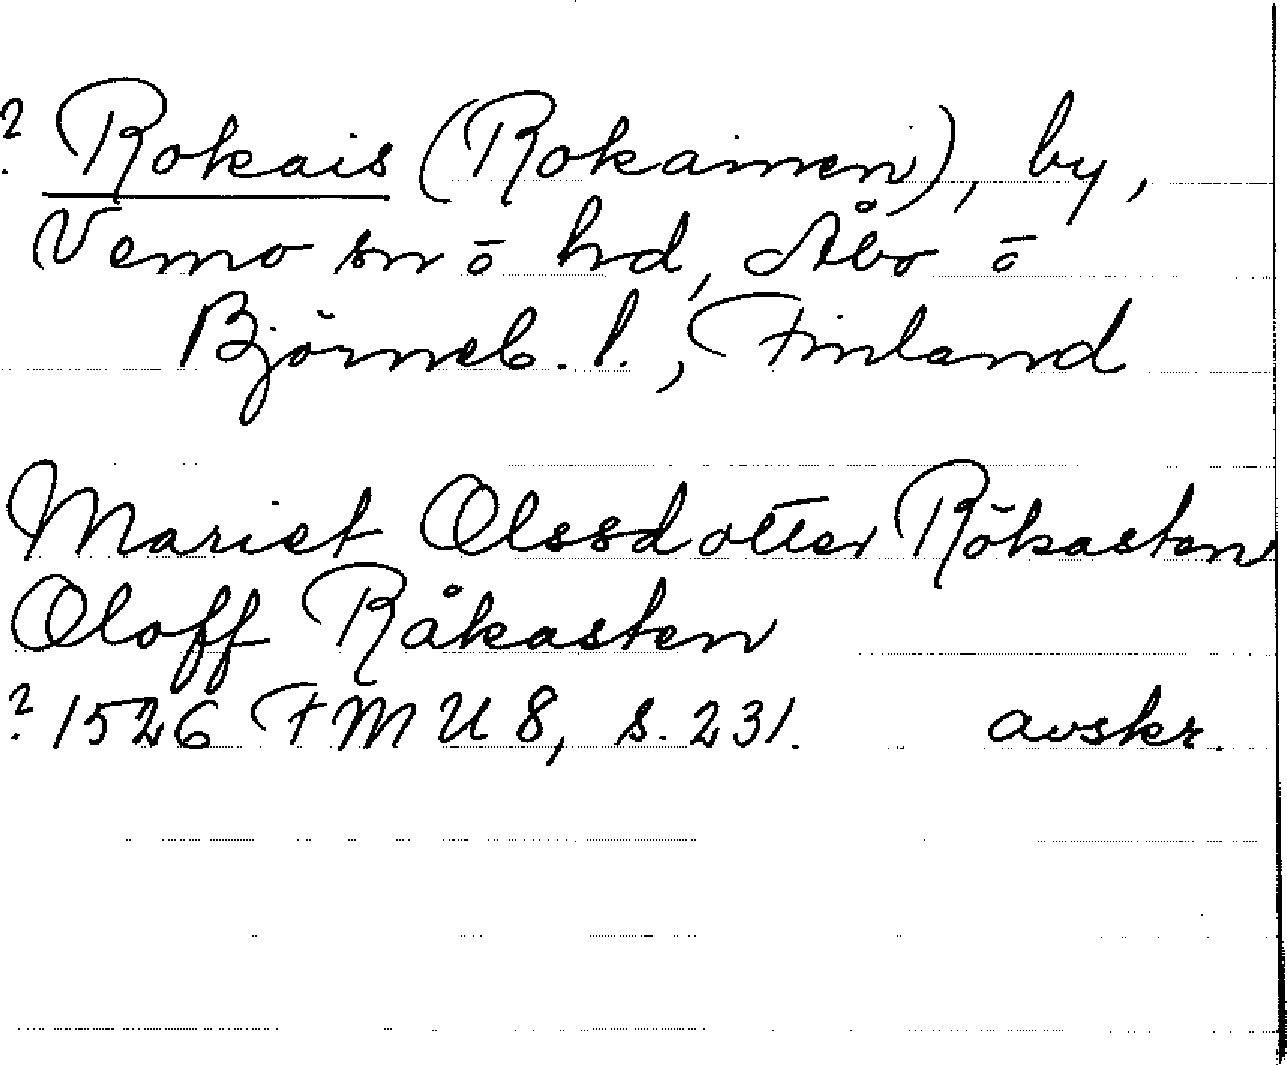 ? Rokais (Rokainen), by,
Vemo sn ō hd, Åbo ō
Björneb. l., Finland
Mariet Olssdotter Rökasten
Oloff Råkasten
? 1526 FMU 8, s. 231. avskr.